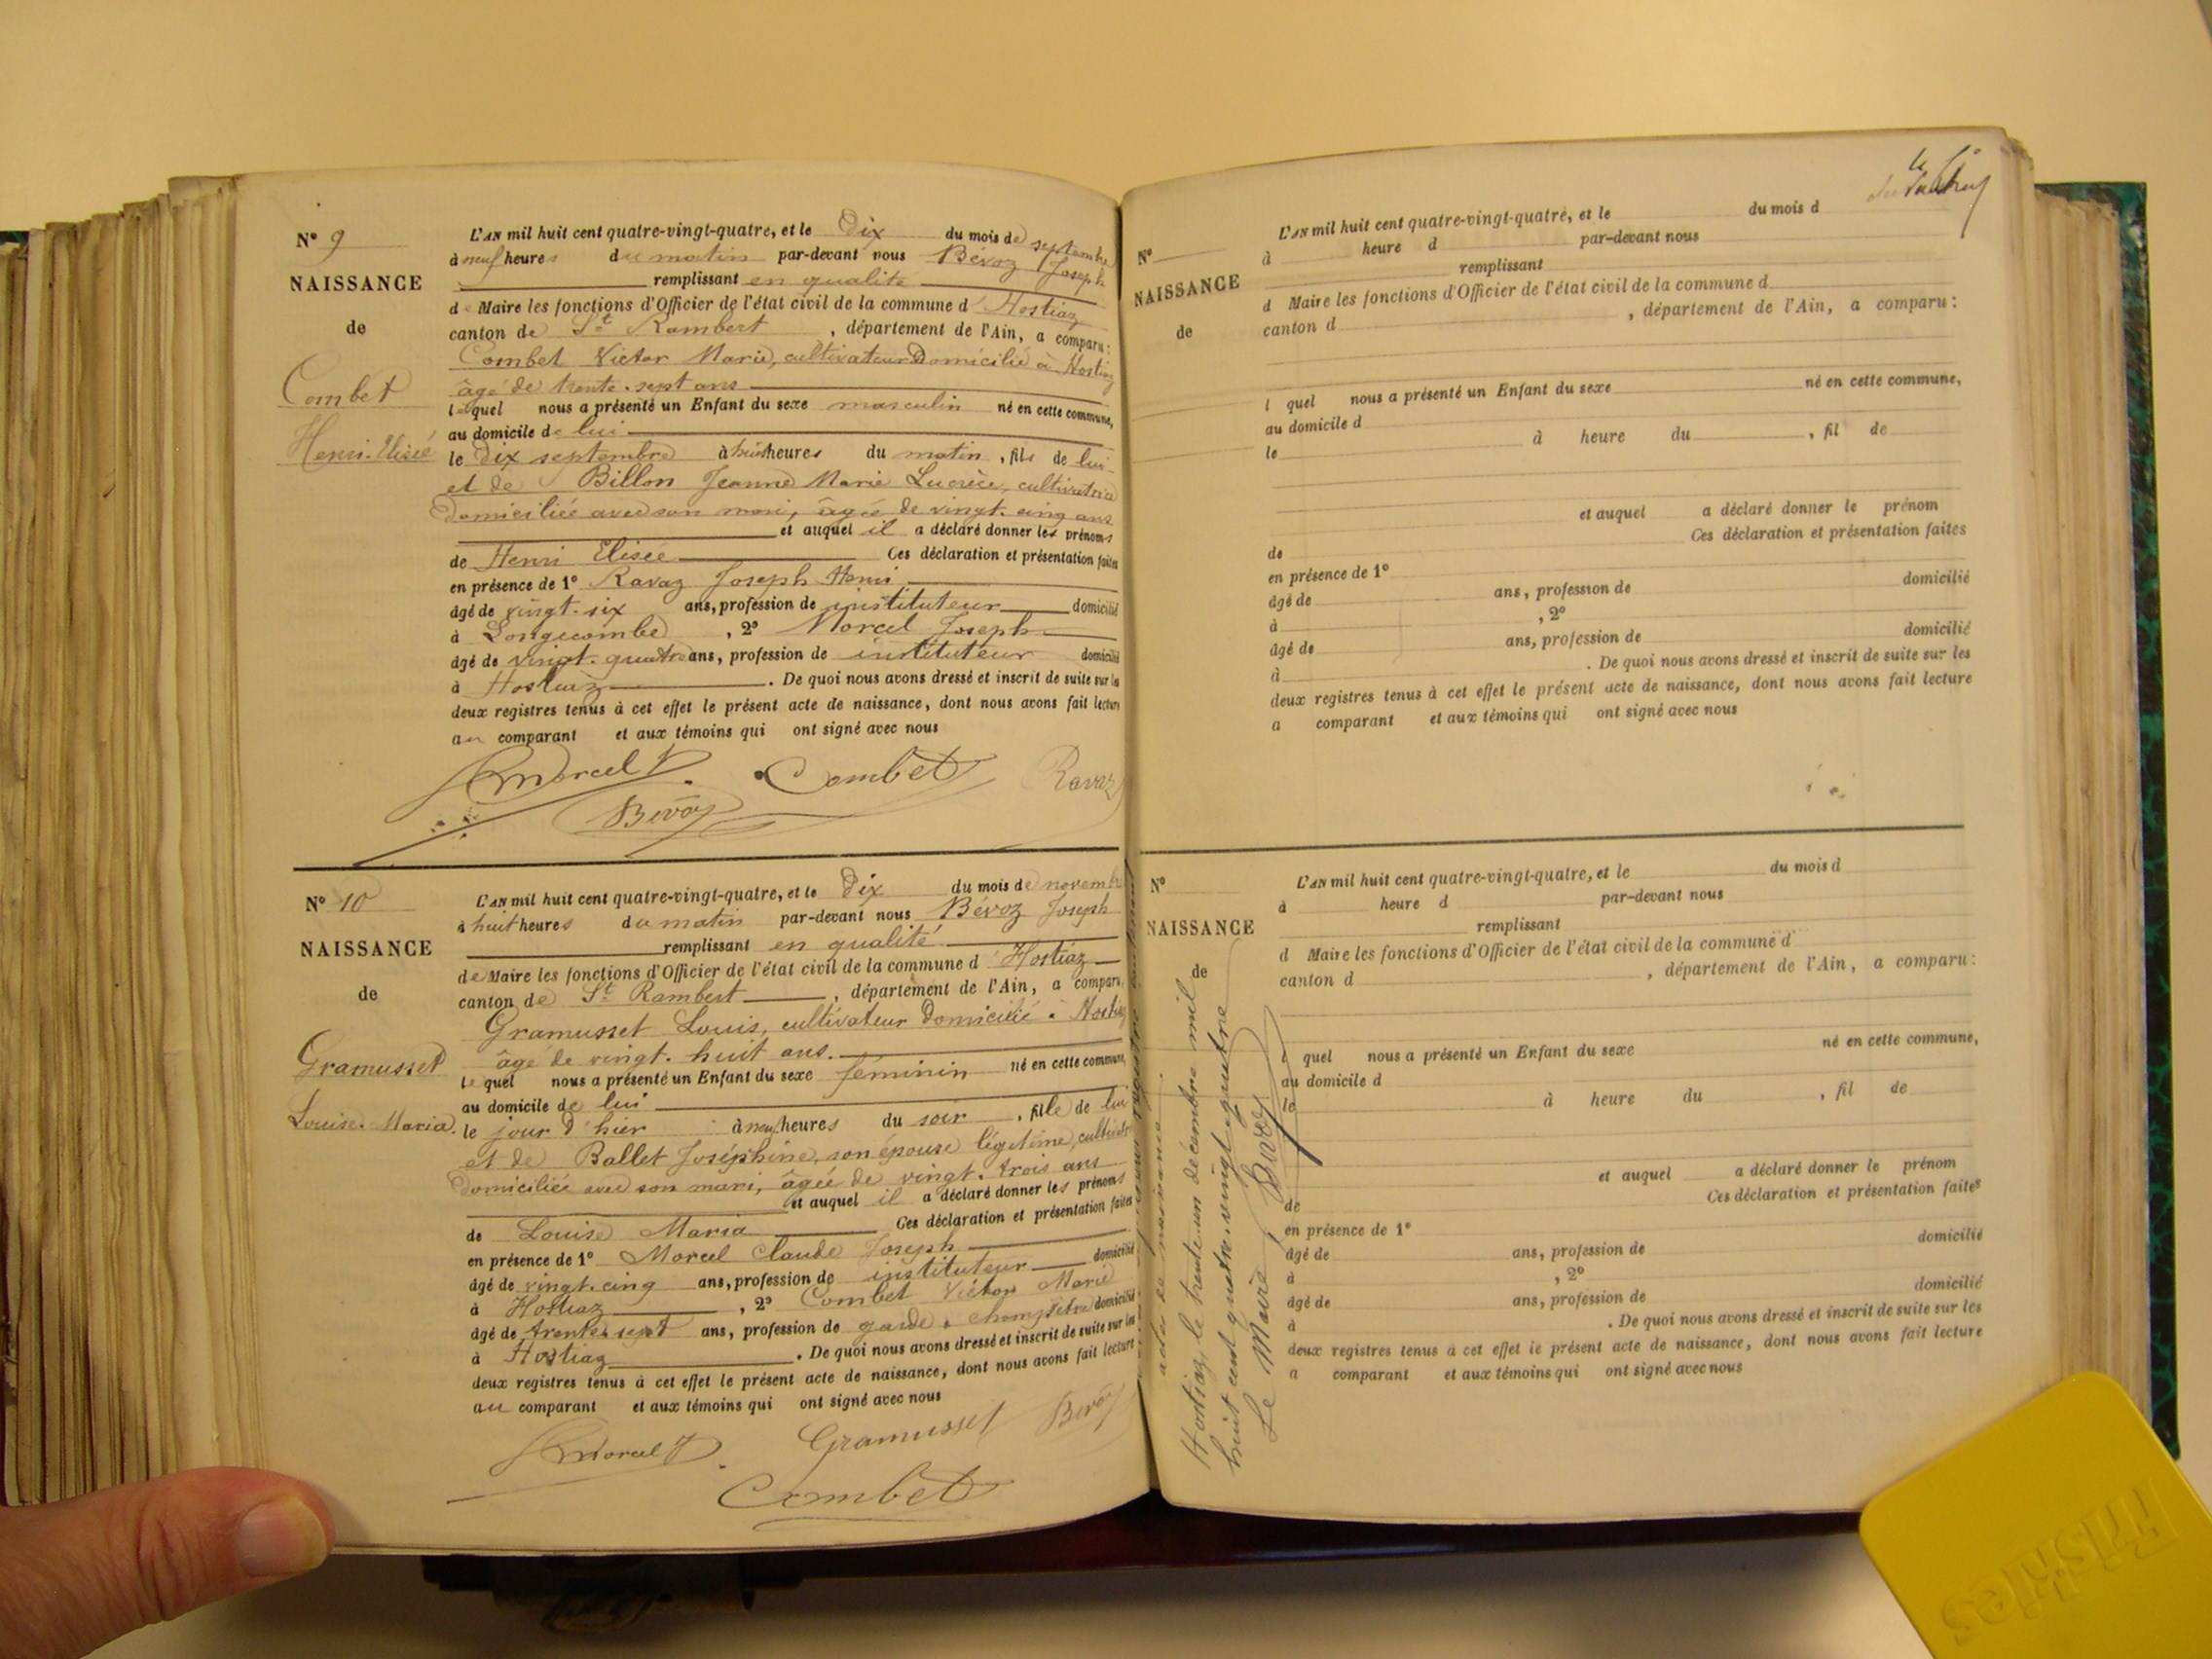 N° 9
NAISSANCE
de
Combet
Henri-Elisée
L'AN mil huit cent quatre-vingt-quatre, et le Dix du mois de septembre
à neuf heures du matin par-devant nous Bévoz Joseph
remplissant en qualité
de Maire les fonctions d'Officier de l'état civil de la commune d'Hostiaz
canton de St Rambert, département de l'Ain, a comparu:
Combet Victor Marie, cultivateur Domicilié à Hostiaz
âgé de trente-sept ans
lequel nous a présenté un Enfant du sexe masculin né en cette commune,
au domicile de lui
le Dix septembre à huit heures du matin, fils de lui
et de Billon Jeanne Marie Lucrèce, cultivatrice
Domiciliée avec son mari, âgée de vingt-cinq ans
et auquel il a déclaré donner les prénoms
de Henri Elisée Ces déclaration et présentation faites
en présence de 1° Ravaz Joseph Henri
âgé de vingt-six ans, profession de instituteur domicilié
à Longecombe, 2° Morcel Joseph
âgé de vingt-quatre ans, profession de instituteur domicilié
à Hostiaz. De quoi nous avons dressé et inscrit de suite sur les
deux registres tenus à cet effet le présent acte de naissance, dont nous avons fait lecture
au comparant et aux témoins qui ont signé avec nous
Morcel J Combet Ravaz
Bévoz
N° 10
NAISSANCE
de
Gramusset
Louise-Maria.
L'AN mil huit cent quatre-vingt-quatre, et le Dix du mois de novembre
à huit heures du matin par-devant nous Bévoz Joseph
remplissant en qualité
de Maire les fonctions d'Officier de l'état civil de la commune d'Hostiaz
canton de St Rambert, département de l'Ain, a comparu,
Gramusset Louis, cultivateur Domicilié à Hostiaz
âgé de vingt-huit ans.
lequel nous a présenté un Enfant du sexe féminin né en cette commune,
au domicile de lui
le jour d'hier à neuf heures du soir, fille de lui
et de Ballet Joséphine, son épouse légitime, cultivatr
Domiciliée avec son mari, âgée de vingt-trois ans
et auquel il a déclaré donner les prénoms
de Louise Maria Ces déclaration et présentation faites
en présence de 1° Morcel Claude Joseph
âgé de vingt-cinq ans, profession de instituteur domicilié
à Hostiaz, 2° Combet Victor Marie
âgé de trente-sept ans, profession de garde-champêtre domicilié
à Hostiaz. De quoi nous avons dressé et inscrit de suite sur les
deux registres tenus à cet effet le présent acte de naissance, dont nous avons fait lecture
au comparant et aux témoins qui ont signé avec nous
Morcel J Gramusset Bévoz
Combet
N°
NAISSANCE
de
L'AN mil huit cent quatre-vingt-quatre, et le du mois d
à heure d par-devant nous
remplissant
d Maire les fonctions d'Officier de l'état civil de la commune d
canton d, département de l'Ain, a comparu:
l quel nous a présenté un Enfant du sexe né en cette commune,
au domicile d
le à heure du, fil de
et auquel a déclaré donner le prénom
de Ces déclaration et présentation faites
en présence de 1°
âgé de ans, profession de domicilié
à, 2°
âgé de ans, profession de domicilié
à. De quoi nous avons dressé et inscrit de suite sur les
deux registres tenus à cet effet le présent acte de naissance, dont nous avons fait lecture
a comparant et aux témoins qui ont signé avec nous
N°
NAISSANCE
de
L'AN mil huit cent quatre-vingt-quatre, et le du mois d
à heure d par-devant nous
remplissant
d Maire les fonctions d'Officier de l'état civil de la commune d
canton d, département de l'Ain, a comparu:
l quel nous a présenté un Enfant du sexe né en cette commune,
au domicile d
le à heure du, fil de
et auquel a déclaré donner le prénom
de Ces déclaration et présentation faites
en présence de 1°
âgé de ans, profession de domicilié
à, 2°
âgé de ans, profession de domicilié
à. De quoi nous avons dressé et inscrit de suite sur les
deux registres tenus à cet effet le présent acte de naissance, dont nous avons fait lecture
a comparant et aux témoins qui ont signé avec nous
acte de naissance.
Hostiaz, le trente-un décembre mil
huit cent quatre-vingt-quatre
Le Maire, Bévoz
Friskies